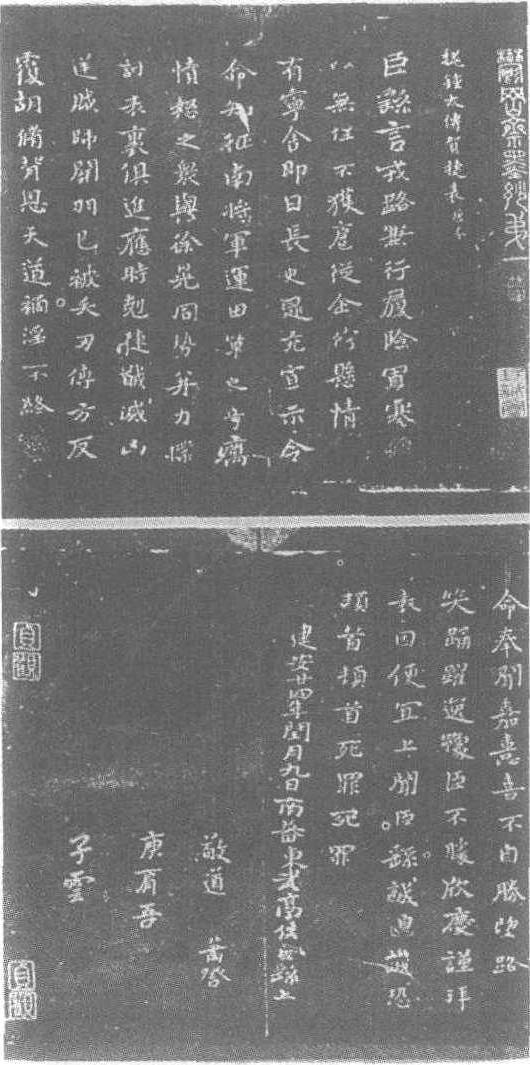 鬱岡齋墨妙第一
魏鍾太傅賀捷表唐本
臣繇言戎路兼行履險冒寒臣
以無任不獲扈從企佇懸情無
有寧舍即日長史逯充宣示令
命知征南將軍運田單之奇厲
憤怒之眾與徐晃同勢并力撲
討表裏俱進應時剋捷馘滅凶
逆賊帥關羽已被矢刃傅方反
覆胡脩背恩天道禍淫不終厥
命奉聞嘉憙喜不自勝望路載
笑踊躍逸豫臣不勝欣慶謹拜
表因便宜上聞臣繇誠惶誠恐
頓首頓首死罪死罪
建安廿四年閏月九日南蕃東武亭侯臣繇上
敬道
庾肩吾
子雲
貞觀
貞觀